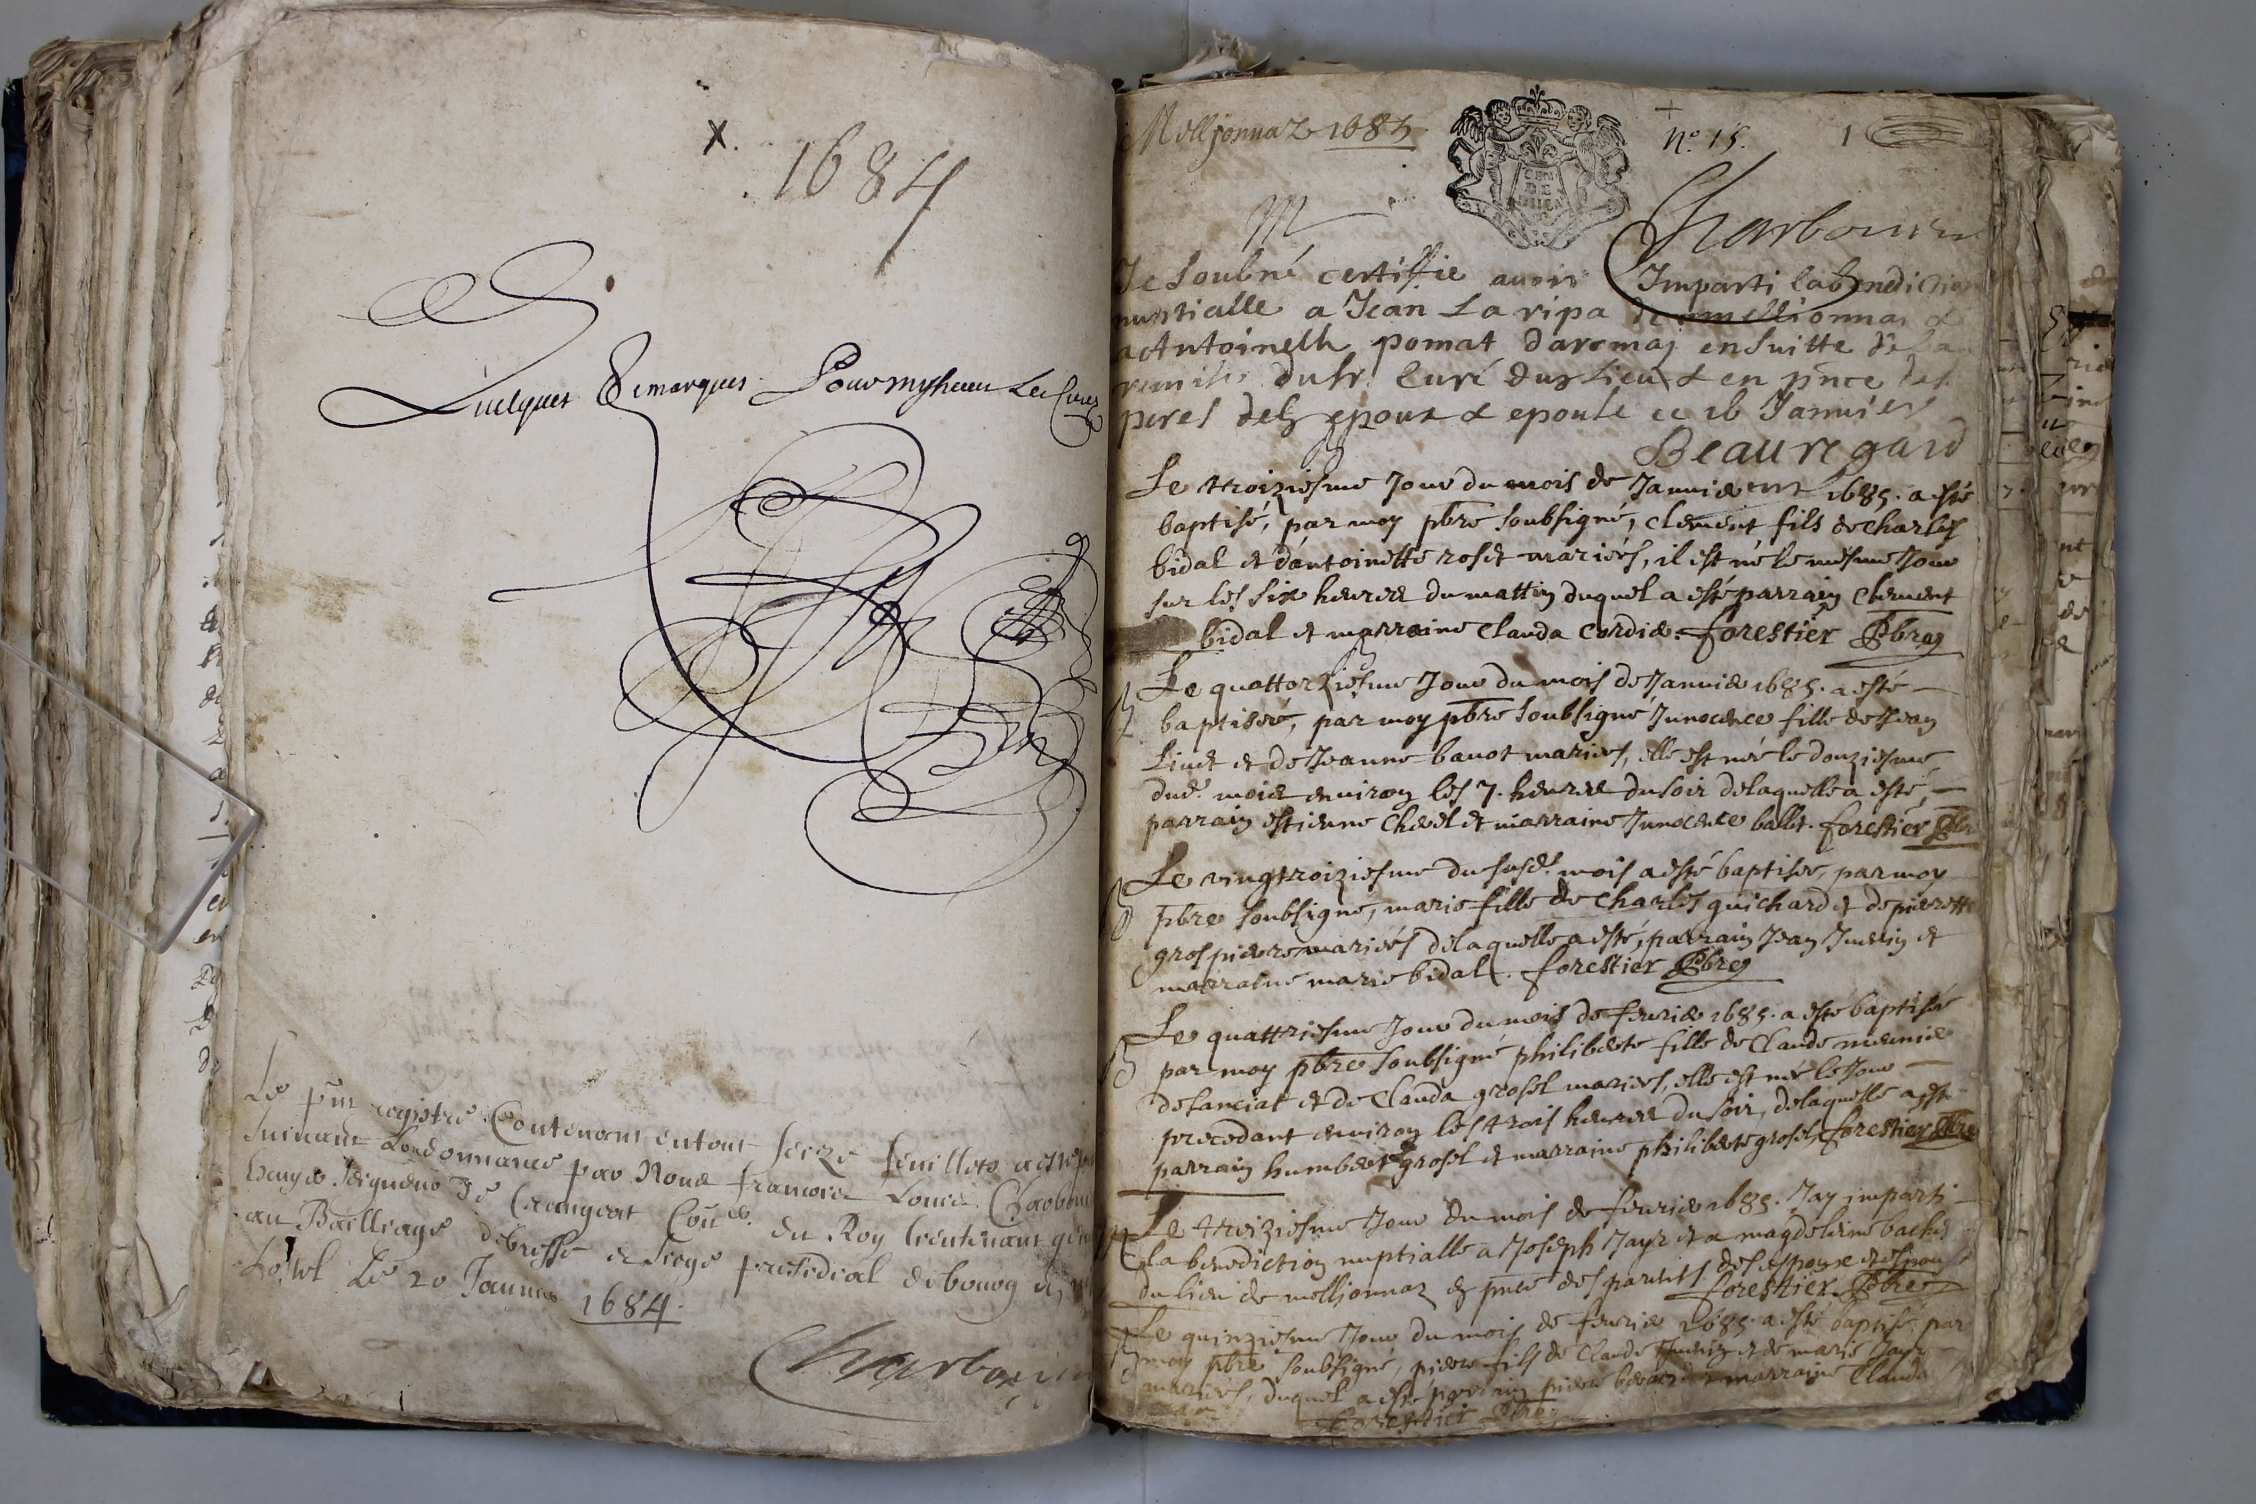 X.
1684
Quelques Remarques Pour mes
Le pnt registre Contenant en tout seize feuillets a este
suivant Lordonnance par Nous francois Louis Charbon
seigneur de Crangeat Con.er du Roy Lieutenant gen
au Bailliage debresse et siege presidial debourg
Le 20 Janvier
1684.
Charbon
Melljonnaz 1685
N.o 15.
1
GEN
DE
Charbon
Je Soubné certiffie avoir Imparti la benediction
nuptialle a Jean La ripa de mellionnas &
a Antoinette pomat daromas en Suitte de la
remise du Sr Curé dud lieu & en pnce des
peres desd epoux & epouse ce 16 Janvier
Beauregard
Le troiziesme Jour du mois de Janvier 1685. a esté
baptisé, par moy pbre soubsigné, clement fils de charles
bidal et dantoinette roset mariés, il est né le mesme Jour
sur les six heures du mattin duquel a esté parrain Clement
bidal et marraine Clauda Cordier. forestier Pbre
Le quattorziesme Jour du mois de Janvier 1685. a esté
baptisée, par moy pbre soubsigné Innocence fille de Jean
Livet et de Jeanne bavot mariés, elle est née le douziesme
dud. mois environ les 7. heures du soir delaquelle a esté,
parrain estienne Chevel et marraine Innocence ballet. forestier Pbre
Le vingtroiziesme du susd. mois a esté baptisée, par moy
pbre soubsigné, marie fille de Charles guichard et de pierrette
grospierre mariés delaquelle a esté, parrain Jean Juvin et
marraine marie bidal. forestier Pbre
Le quattriesme Jour du mois de fevrier 1685. a esté baptisée
par moy pbre soubsigné philiberte fille de Claude meunier
desanciat et de Clauda grosel mariés, elle est née le Jour
precedant environ les trois heures du soir, delaquelle a esté
parrain humbert grosel et marraine philiberte grosel, forestier Pbre
Le treiziesme Jour du mois de fevrier 1685. Jay imparti
la benediction nuptialle a Joseph Jayr et a magdeleine
du lieu de melljonnaz en pnce des parents des espoux et espouse
forestier Pbre
Le quinziesme Jour du mois de fevrier 1685. a esté baptisé, par
moy pbre soubsigné, pierre fils de Claude Juvin et de marie Jayr
mariés, duquel a esté parrain pierre et marraine Clauda
forestier Pbre